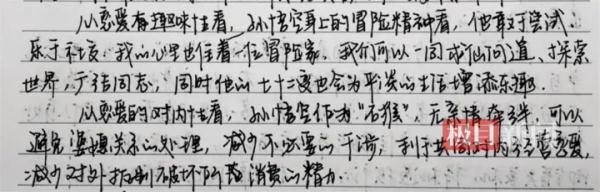 从恋爱有趣味性看，孙悟空身上的冒险精神看，他敢于尝试、
乐于社交；我的心里也住着一位冒险家，我们可以一同成仙问道、探索
世界，广结同志，同时他的七十二变也会为平淡的生活增添乐趣。
从恋爱的对内性看，孙悟空作为“石猴”，无亲情牵绊，可以
避免婆媳关系的处理，减少不必要的干涉，利于共同对内经营恋爱，
减少对外抵制破坏所要消费的精力。
极目